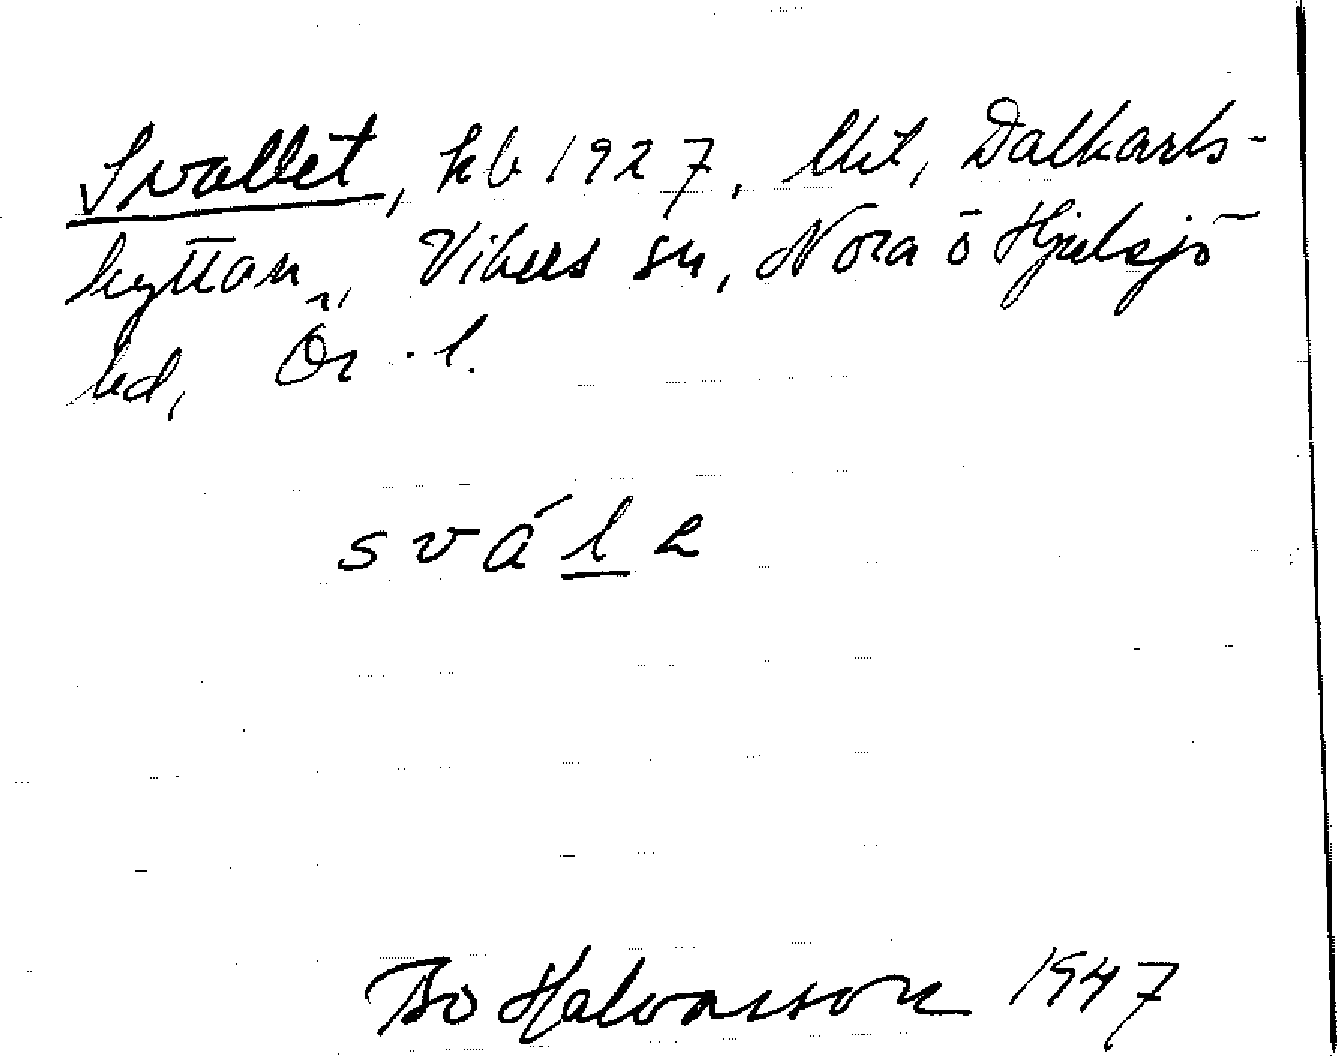 Svallet, kb 1927, lht, Dalkarls-
hyttan, Vikers sn, Nora o Hjulsjö
bd, Ör. l.
svála
Bo Halvarsson 1947